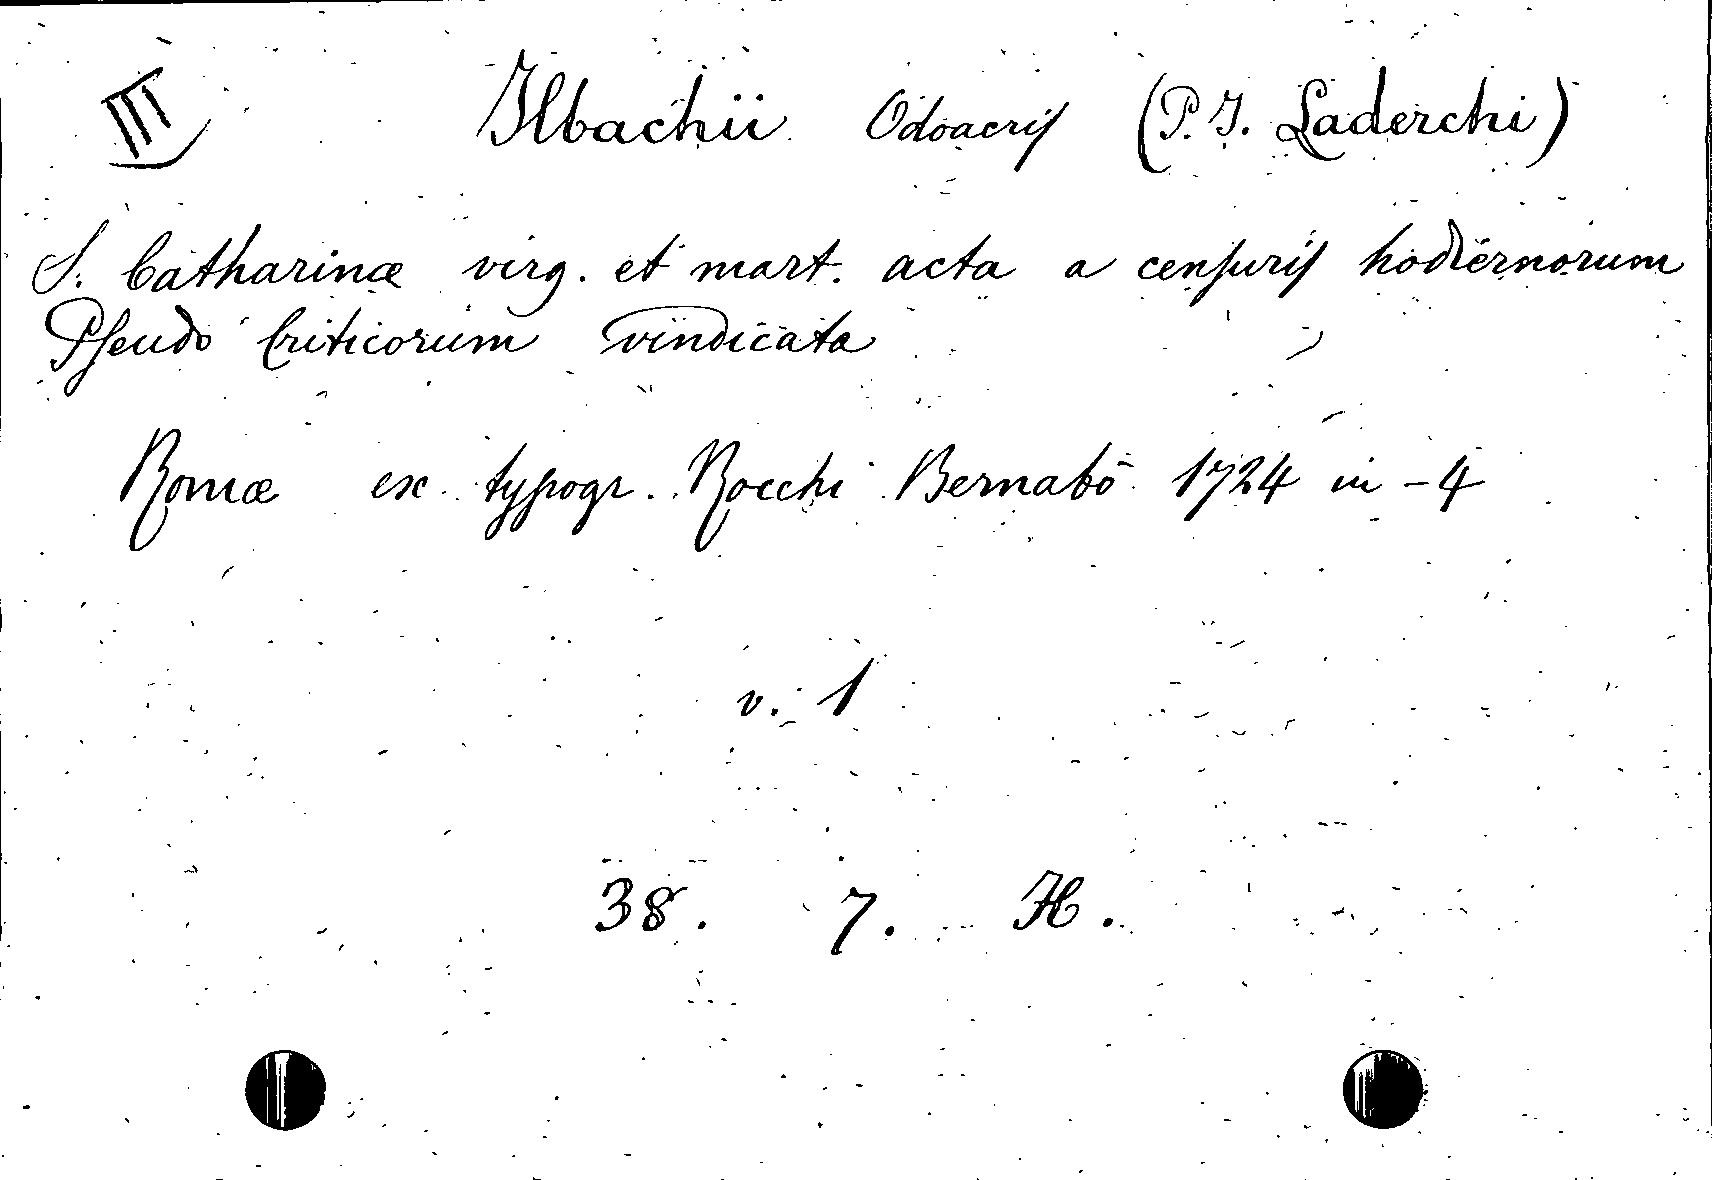 III
Ilbachii Odoacris (P. J. Laderchi)
S. Catharinæ virg. et mart. acta a censuris hodiernorum
Pseudo Criticorum vindicata
Romæ ex typogr. Rocchi Bernabò 1724 in-4
v. 1
38. 7. H.